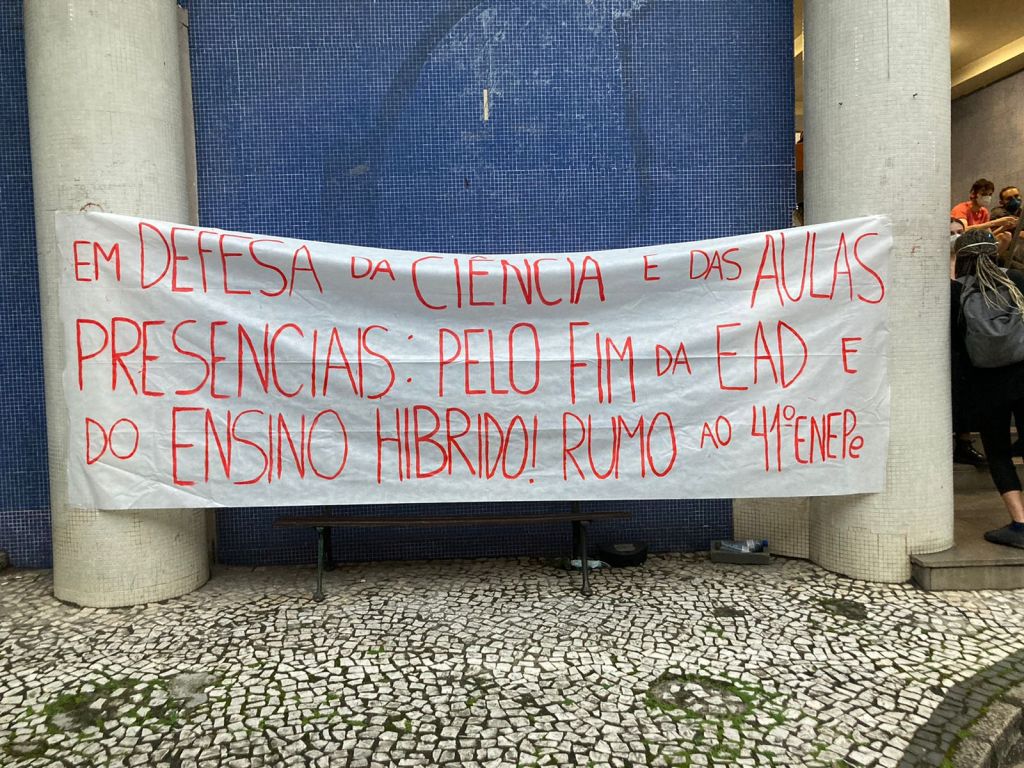 EM DEFESA DA CIÊNCIA E DAS AULAS
PRESENCIAIS: PELO FIM DA EAD E
DO ENSINO HIBRIDO! RUMO AO 41º ENEPe